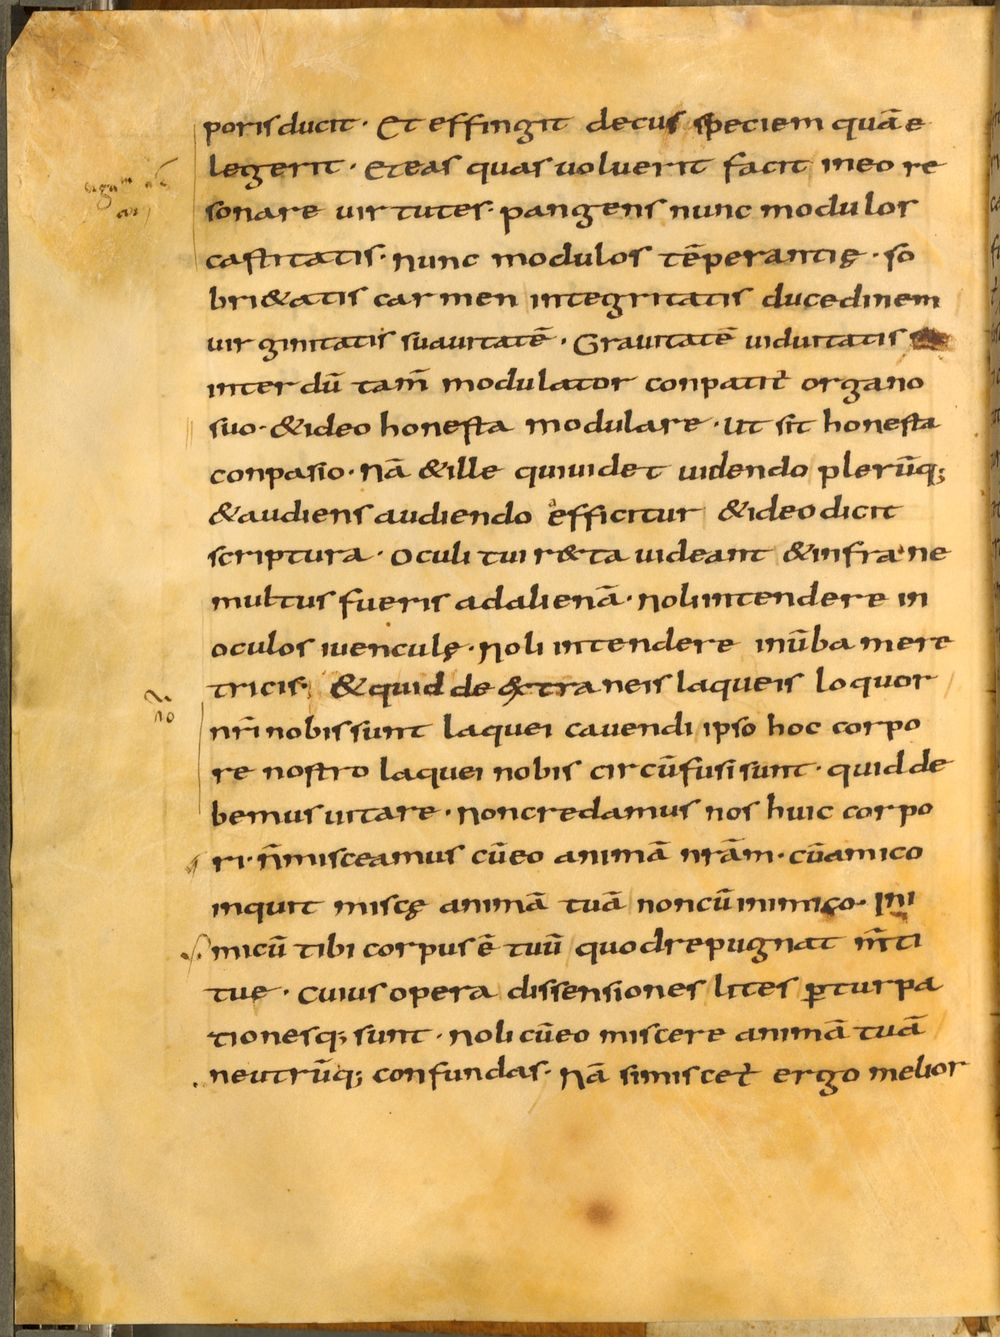 poris ducit · Et effingit decus speciem quā e
legerit · Et eas quas voluerit facit in eo re
sonare virtutes · pangens nunc modulos
castitatis · nunc modulos tēperantię · so
bri&atis carmen integritatis ducedinem
virginitatis suavitatē · Gravitatē viduitatis
interdū tam̄ modulator conpatit̄ organo
suo · & ideo honesta modulare · ut sit honesta
conpasio · Nā & ille qui videt videndo plerūq;
& audiens audiendo efficitur & ideo dicit
scriptura · Oculi tui r&ta videant & infra ne
multus fueris ad alienā · Noli intendere in
oculos iuenculę · Noli intendere in ūba mere
tricis · & quid de extraneis laqueis loquor
nr̄i nobis sunt laquei cavendi ipso hoc corpo
re nostro laquei nobis circūfusi sunt · quid de
bemus vitare · Non credamus nos huic corpo
ri · n̄ misceamus cū eo animā nrām · cū amico
inquit miscę animā tuā non cū inimico · Ini
micū tibi corpus ē tuū quod repugnat m̄ti
tuę · Cuius opera dissensiones lites ꝑturpa
tionesq; sunt · Noli cū eo miscere animā tuā
ne utrūq; confundas · Nā si miscet̄ ergo melior